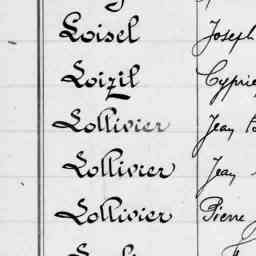 Loisel Joseph
Loizil Cyprie
Lollivier Jean
Lollivier Jean
Lollivier Pierre